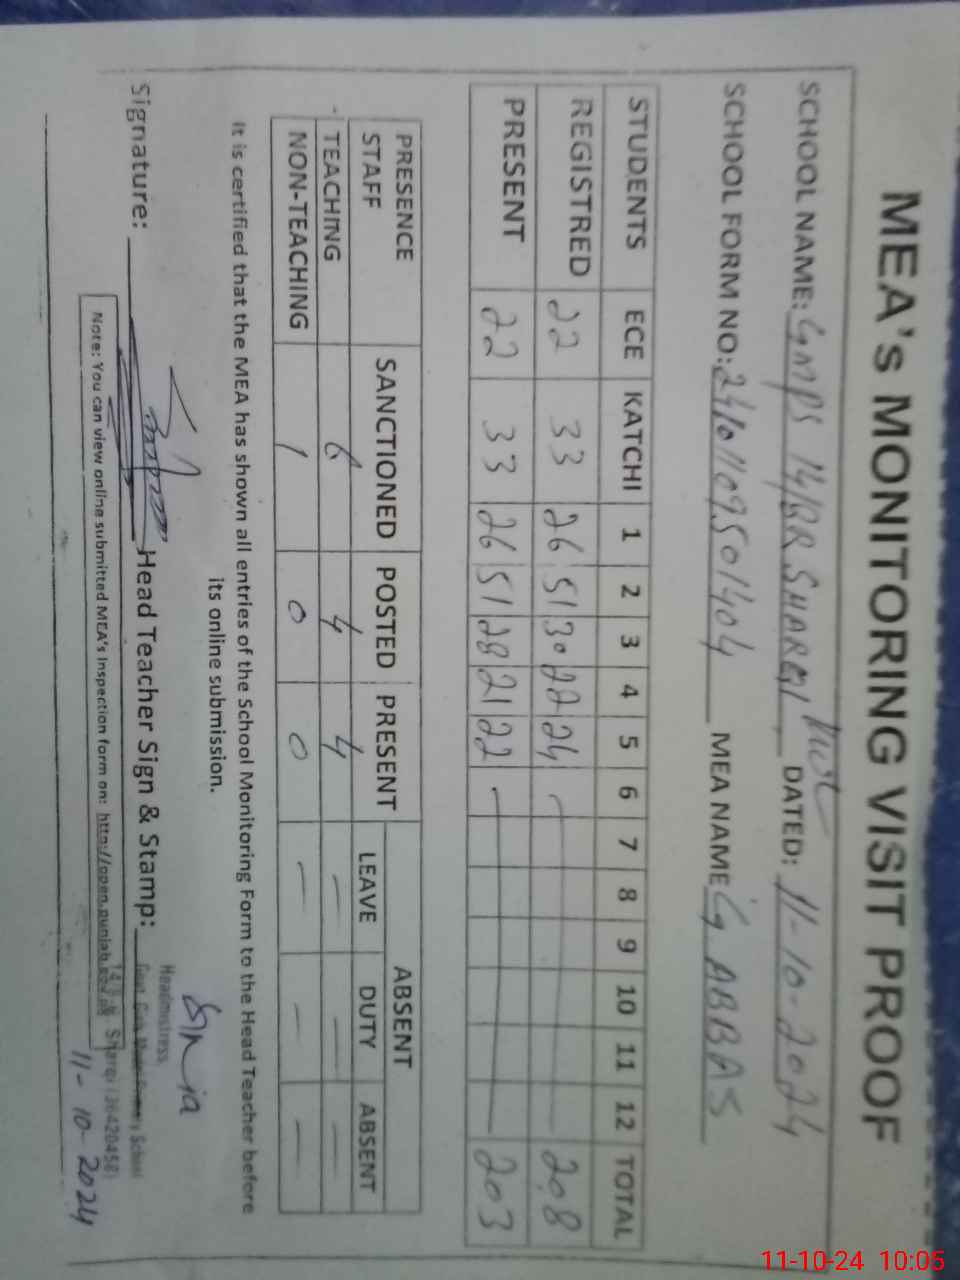 MEA's MONITORING VISIT PROOF
SCHOOL NAME: GMPS 14/BR SHARQI DATED: 11-10-2024
SCHOOL FORM NO: MEA NAME G. ABBAS
STUDENTS ECE KATCHI 1 2 3 4 5 6 7 8 9 10 11 12 TOTAL
REGISTRED 22 33 26 51 30 22 24 208
PRESENT 22 33 26 51 28 21 22 203
PRESENCE STAFF SANCTIONED POSTED PRESENT ABSENT
LEAVE DUTY ABSENT
TEACHING 6 4 4 — — —
NON-TEACHING 1 0 0 — — —
It is certified that the MEA has shown all entries of the School Monitoring Form to the Head Teacher before
its online submission.
Signature: Head Teacher Sign & Stamp:
Headmistress
Note: You can view online submitted MEA's Inspection form on: http://open.punjab.gov.pk
Sharqi (36420458)
11-10-2024
11-10-24 10:05